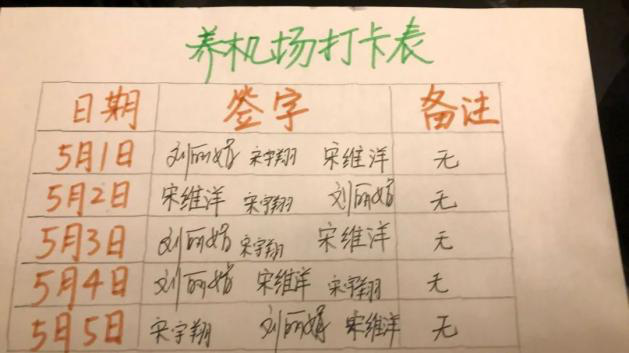 养机场打卡表
日期 签字 备注
5月1日 刘丽娟 宋宇翔 宋维洋 无
5月2日 宋维洋 宋宇翔 刘丽娟 无
5月3日 刘丽娟 宋宇翔 宋维洋 无
5月4日 刘丽娟 宋维洋 宋宇翔 无
5月5日 宋宇翔 刘丽娟 宋维洋 无